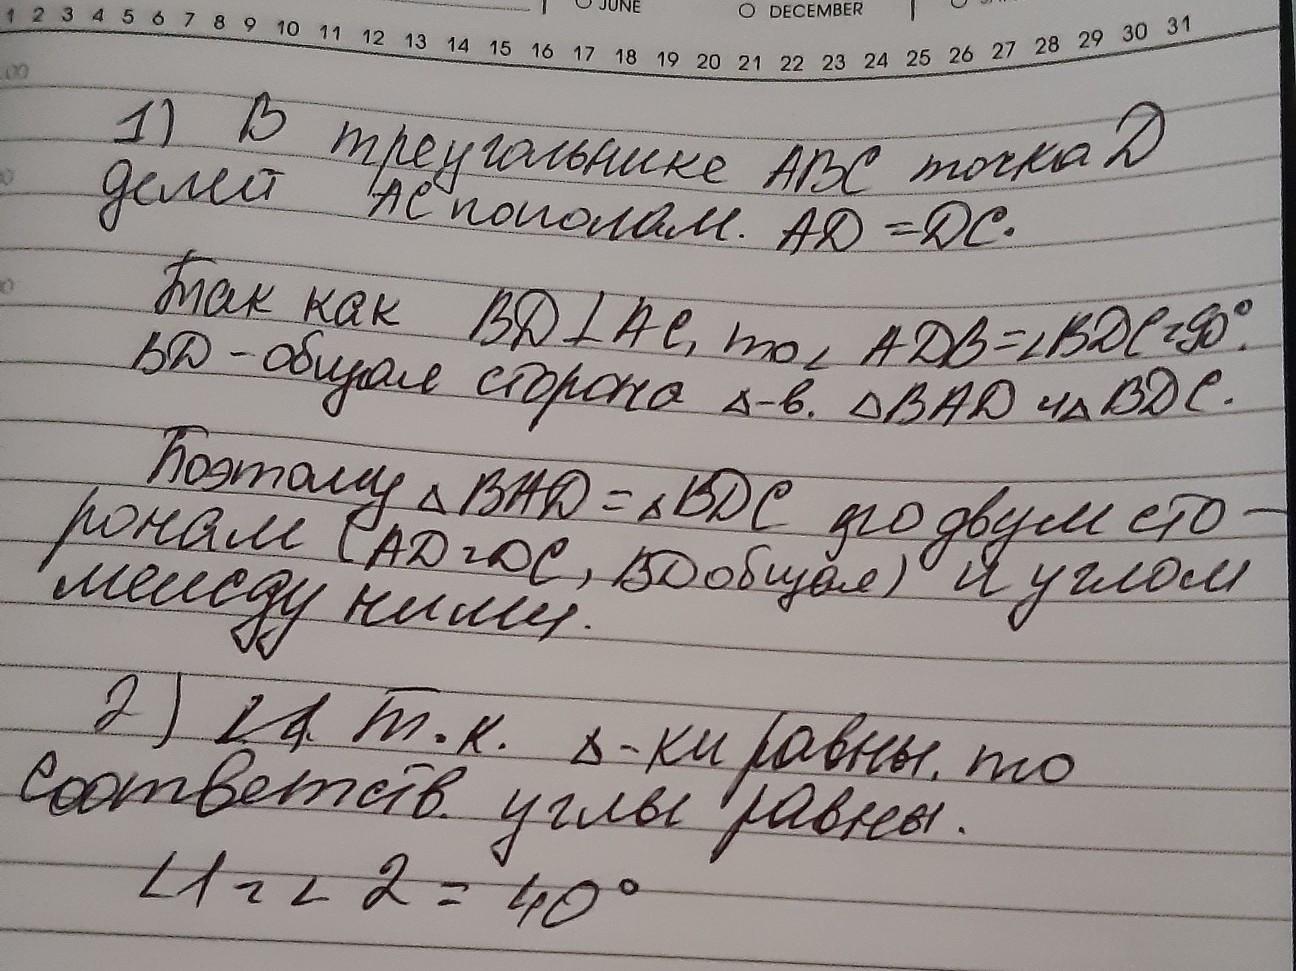 JUNE DECEMBER
1 2 3 4 5 6 7 8 9 10 11 12 13 14 15 16 17 18 19 20 21 22 23 24 25 26 27 28 29 30 31
1) В треугольнике ABC точка D
делит AC пополам. AD = DC.
Так как BD ⊥ AC, то ∠ ADB = ∠BDC = 90°.
BD - общая сторона Δ-в. ΔBAD и Δ BDC.
Поэтому Δ BAD = Δ BDC по двум сто-
ронам (AD = DC, BD общая) и углом
между ними.
2) Т.к. Δ-ки равны, то
соответств. углы равны.
∠1 = ∠ 2 = 40°